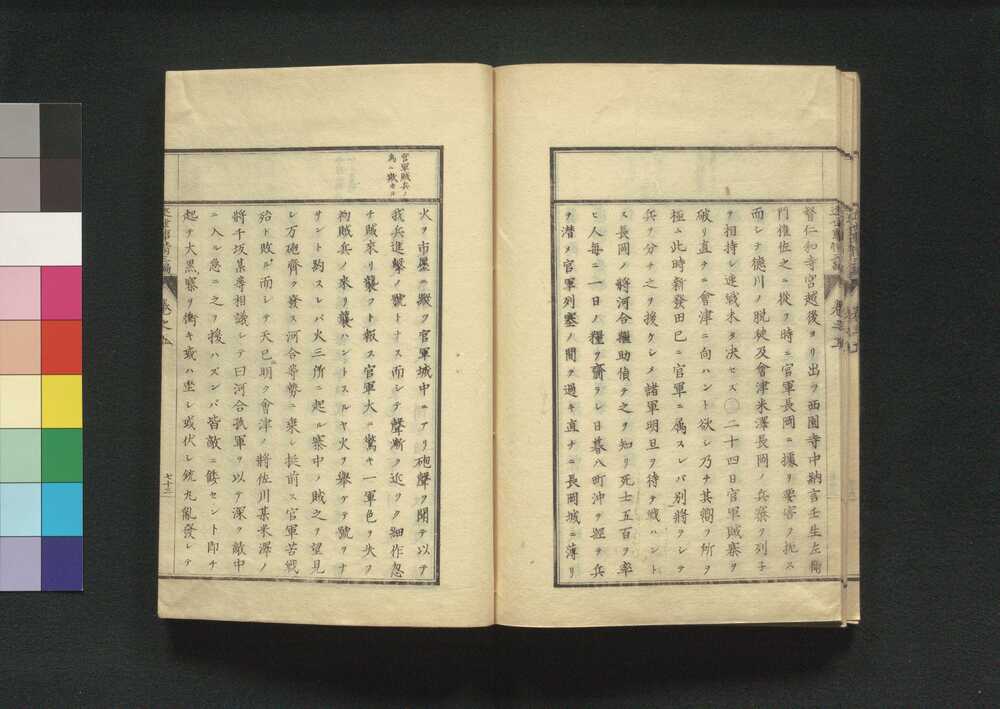 督仁和寺宮越後ヨリ出ヲ西園寺中納言壬生左衛
門権佐之ニ従フ時ニ官軍長岡ニ據リ要害ヲ扼ス
而シテ徳川ノ脱硬及會津米澤長岡ノ兵寨ヲ列子
ヲ相持シ連戦未タ決セス〇二十四日官軍賊寨ヲ
破リ直チニ會津ニ向ハント欲シ乃チ其嚮フ所ヲ
極ム此時新發田已ニ官軍ニ属スレバ別將ヲシテ
兵ヲ分チ之ヲ援ケシメ諸軍明旦ヲ待テ戦ハント
ス長岡ノ將河合繼助偵テ之ヲ知リ死士五百ヲ率
ヒ人毎ニ一日ノ糧ヲ齎ラシ日暮八町沖ヲ經テ兵
ヲ潜メ官軍列塞ノ間ヲ過キ直チニ長岡城ニ薄リ
官軍賊兵ノ
為ニ欺カル
火ヲ市墨ニ撒ツ官軍城中ニアリ砲聲ヲ聞テ以テ
我兵進撃ノ號トナス而シテ聲漸ク近ツク細作忽
チ賊來リ襲フト報ス官軍大ニ驚キ一軍色ヲ失フ
初賊兵ノ來リ襲ハントスルヤ火ヲ擧ゲテ號ヲナ
サント約スレバ火三所ニ起ル寨中ノ賊之ヲ望見
シ万砲齊ク發ス河合等勢ニ乗シ挺前ス官軍苦戦
殆ド敗ル而シテ天已ニ明ク會津ノ將佐川某米澤ノ
將千坂某等相議シテ曰河合孤軍ヲ以テ深ク敵中
ニ入ル急ニ之ヲ援ハズンバ皆敵ニ餧セント即チ
起テ大黒寨リ衝キ或ハ坐シ或伏シ銃丸亂發シテ
七十三